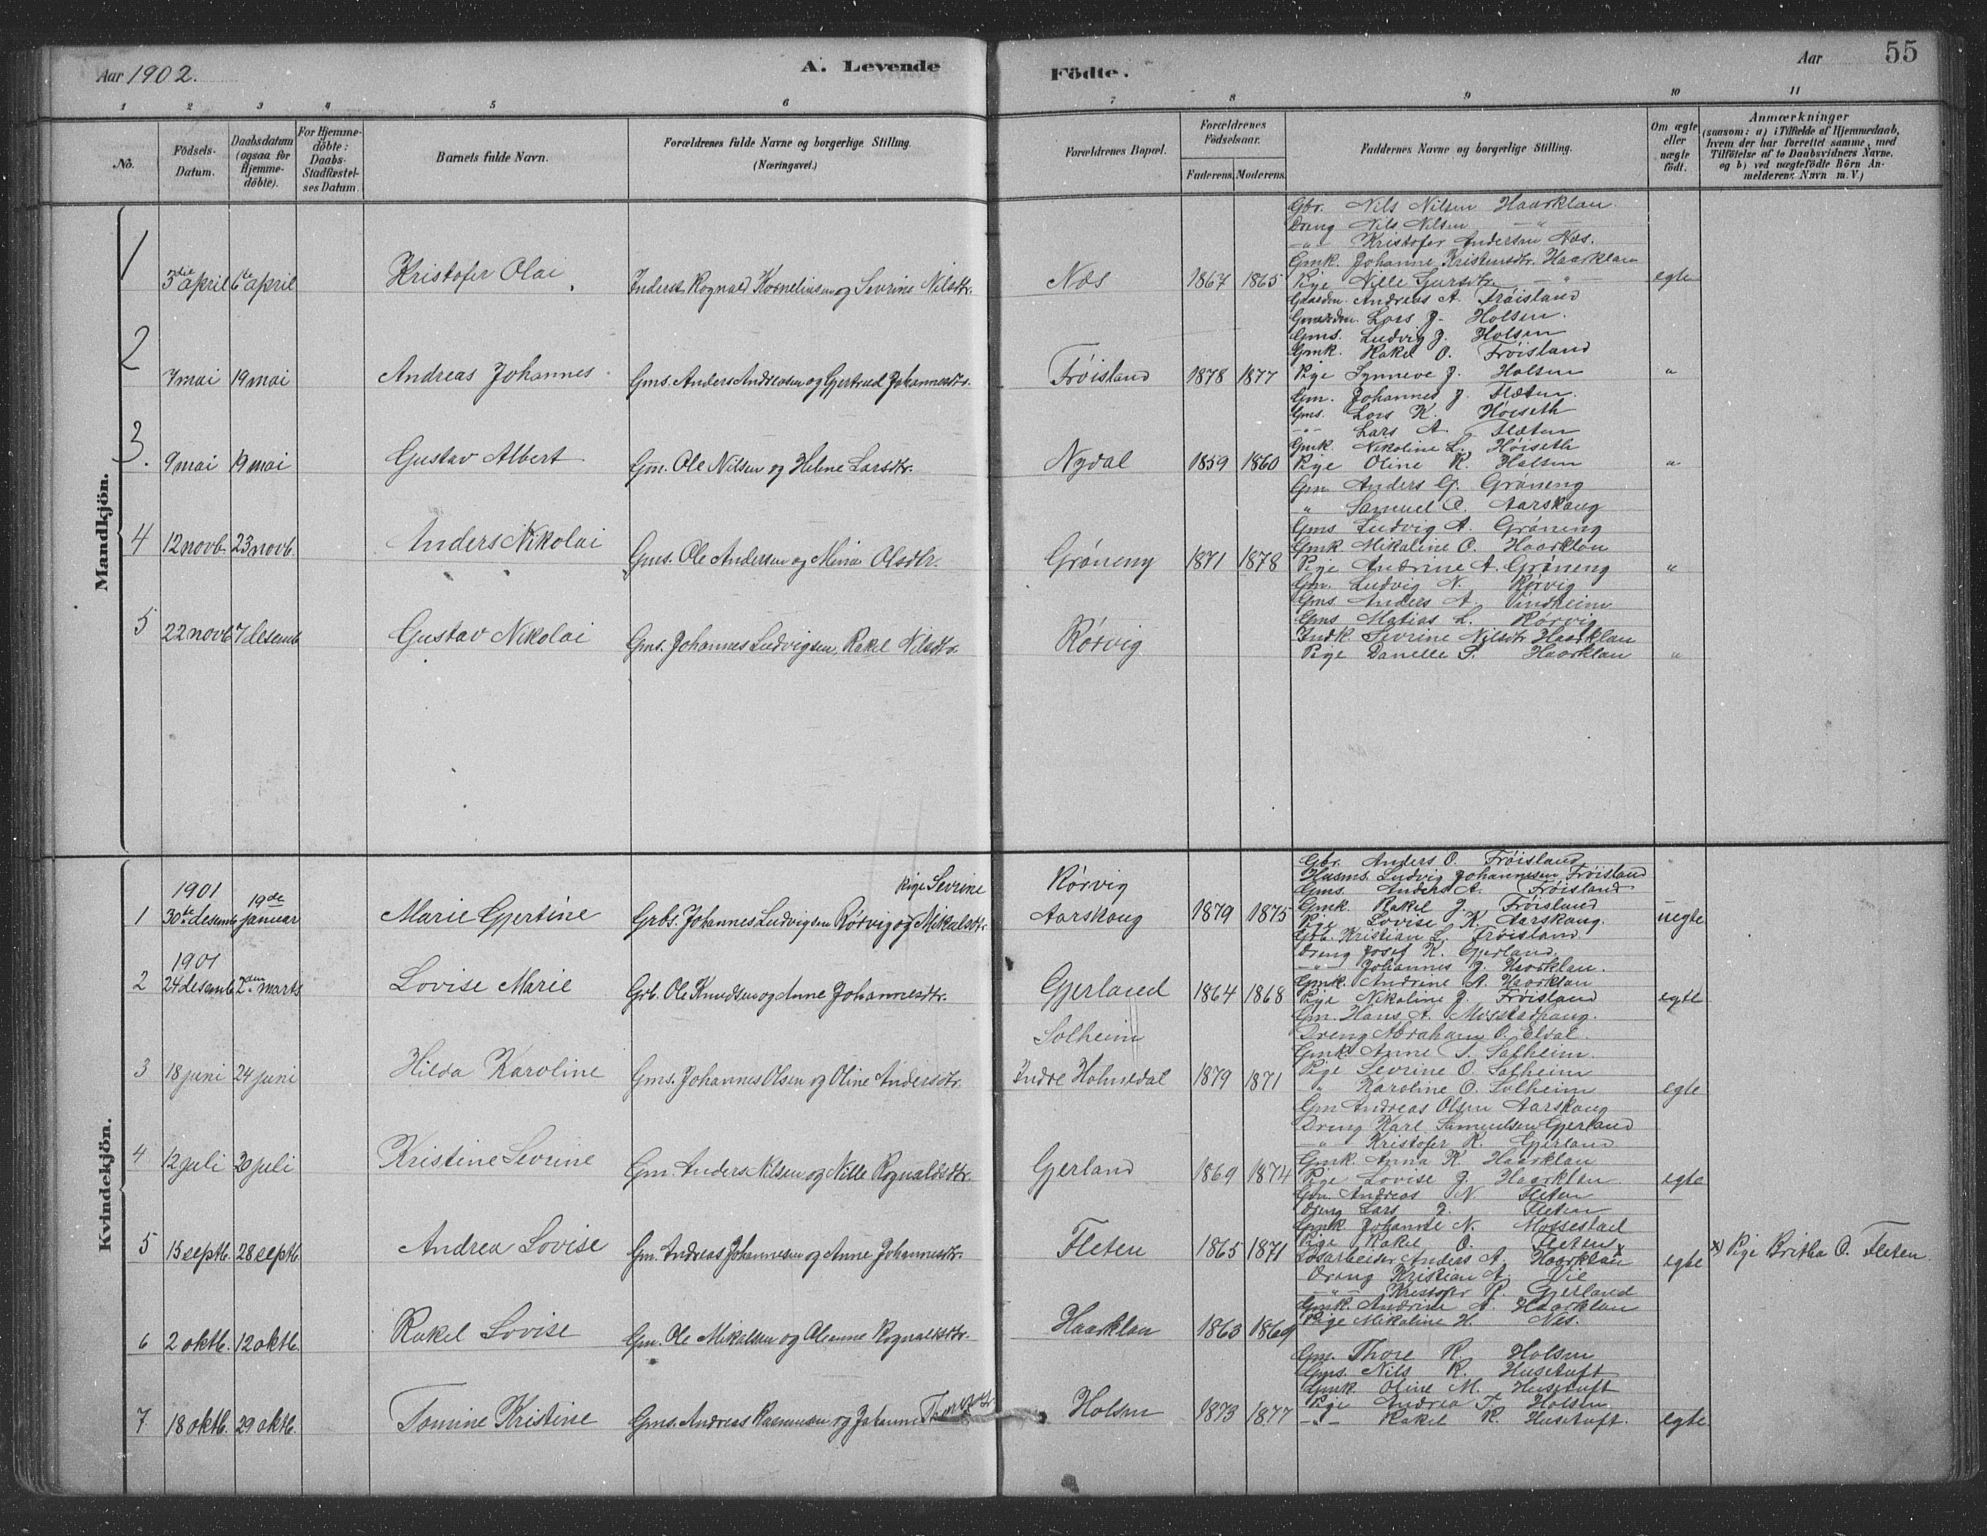 Aar 1902.
A. Levende
Födte.
Aar
55
1 2 3 4 5 6 7 8 9 10 11
No.
Födsels-Datum.
Daabsdatum (ogsaa for Hjemmedöbte).
For Hjemmedöbte: Daabs-Stadfæstelses Datum.
Barnets fulde Navn.
Forældrenes fulde Navne og borgerlige Stilling. (Næringsvei.)
Forældrenes Bopæl.
Forældrenes Födselsaar.
Faderens. Moderens.
Faddernes Navne og borgerlige Stilling.
Om ægte eller uægte födt.
Anmærkninger
(saasom: a) i Tilfælde af Hjemmedaab, hvem der har forrettet samme, med Tilföielse af to Daabsvidners Navne, og b) ved uægtefödte Börn Anmelderens Navn m. V.)
Mandkjön.
1 3die april 6te april Kristofer Olai Inderst. Rognald Korneliusen og Sevrine Nilsdtr. Næs 1867 1865 egte
Gbr. Nils Nilsen Haarklau
Dreng Nils Nilsen -"-
-"- Kristofer Andersen Næs.
Gmk. Johanne Kristensdtr. Haarklau
Pige Nille Larsdtr. -"-
2 7 mai 19 mai Andreas Johannes. Gms. Anders Andreasen og Gjertrud Johannesdtr. Frøisland 1878 1877 "
Andreas A. Frøisland
Lars J. Holsen.
Gms. Ludvig J. Holsen
Gmk. Rakel O. Frøisland
Pige Synneve J. Holsen
3. 9 mai 19 mai Gustav Albert Gm. Ole Nilsen og Helene Larsdtr. Nydal 1859 1860 "
Gm. Johannes J. Flæten.
Gms. Lars K. Høiseth
-"- Lars A. Flæten
Gmk. Nikoline L. Høiseth
Pige Oline R. Holsen
4 12 novb. 23 novb. Anders Nikolai Gms. Ole Andersen og Mina Olsdtr. Grøneng 1871 1878 "
Gm. Anders G. Grøneng
" Samuel O. Aarskaug
Gms. Ludvig A. Grøneng
Gmk. Mikaline O. Haarklau
Pige Andrine A. Grøneng
5 22 novb. 7 desemb. Gustav Nikolai Gms. Johannes Ludvigsen, Rakel Nilsdtr. Rørvig "
Gm. Ludvig N. Rørvig
Gms. Anders A. Vindheim
Gms. Matias L. Rørvig
Indk. Sevrine Nilsdtr. Haarklau
Pige Danelle S. Haarklau
Kvindekjön.
1 1901 30te desemb. 19de januar Marie Gjertine Grbs. Johannes Ludvigsen Rørvig og Pige Sevrine Mikalsdtr. Rørvig Aarskaug 1879 1875 uegte
Gbr. Anders O. Frøisland
Husms. Ludvig Johannesen Frøisland
Gms. Anders A. Frøisland
Gmk. Rakel J. Frøisland
Pige Lovise K. Aarskaug.
2 1901 24 desemb. 2den marts Lovise Marie Grb. Ole Knudsen og Anne Johannesdtr. Gjerland 1864 1868 egte
Grb. Kristian L. Frøisland.
Dreng Josef K. Gjerland.
-"- Johannes J. Haarklau.
Gmk. Andrine A. Haarklau
Pige Nikoline J. Frøisland
3 18 juni 24 juni Hilda Karoline Gms. Johannes Olsen og Oline Andersdtr. Solheim Indre Holmedal 1879 1871 egte
Gm. Hans A. Mosstadhaug.
Dreng Abraham O. Eldal.
Gmk. Anne S. Solheim.
Pige Sevrine O. Solheim
" Karoline O. Solheim
4 12 juli 20 juli Kristine Sevrine Gm. Anders Nilsen og Nille Rognaldsdtr. Gjerland 1869 1874 egte
Gm. Andreas Olsen Aarskaug
Dreng Karl Samuelsen Gjerland
-"- Kristofer R. Gjerland
Gmk. Anna K. Haarklau
Pige Lovise J. Haarklau
5 15 septb. 28 septb. Andrea Lovise Gm. Andreas Johannesen og Anne Johannesdtr. Fleten 1865 1871 egte x) Pige Britha O. Fleten
Gbr. Andreas N. Fleten
Dreng Lars J. Fleten
Gmk. Johanne N. Mossestad
Pige Rakel O. Fleten x
6 2 oktb. 12 oktb. Rakel Lovise Gm. Ole Mikalsen og Oleanne Rognaldsdtr. Haarklau 1863 1869
Løsarbeider Anders A. Haarklau
Dreng Kristian A. Vie
-"- Kristofer R. Gjerland
Gmk. Andrine A. Haarklau
Pige Mikaline H. Nes.
7 18 oktb. 29 oktb. Tomine Kristine Gms. Andreas Rasmusen og Johanne Holsen 1873 1877 egte
Gm. Thore R. Holsen
Gms. Nils R. Husetuft
Gmk. Oline M. Husetuft
Pige Andrea T. Holsen.
-"- Rakel R. Husetuft.